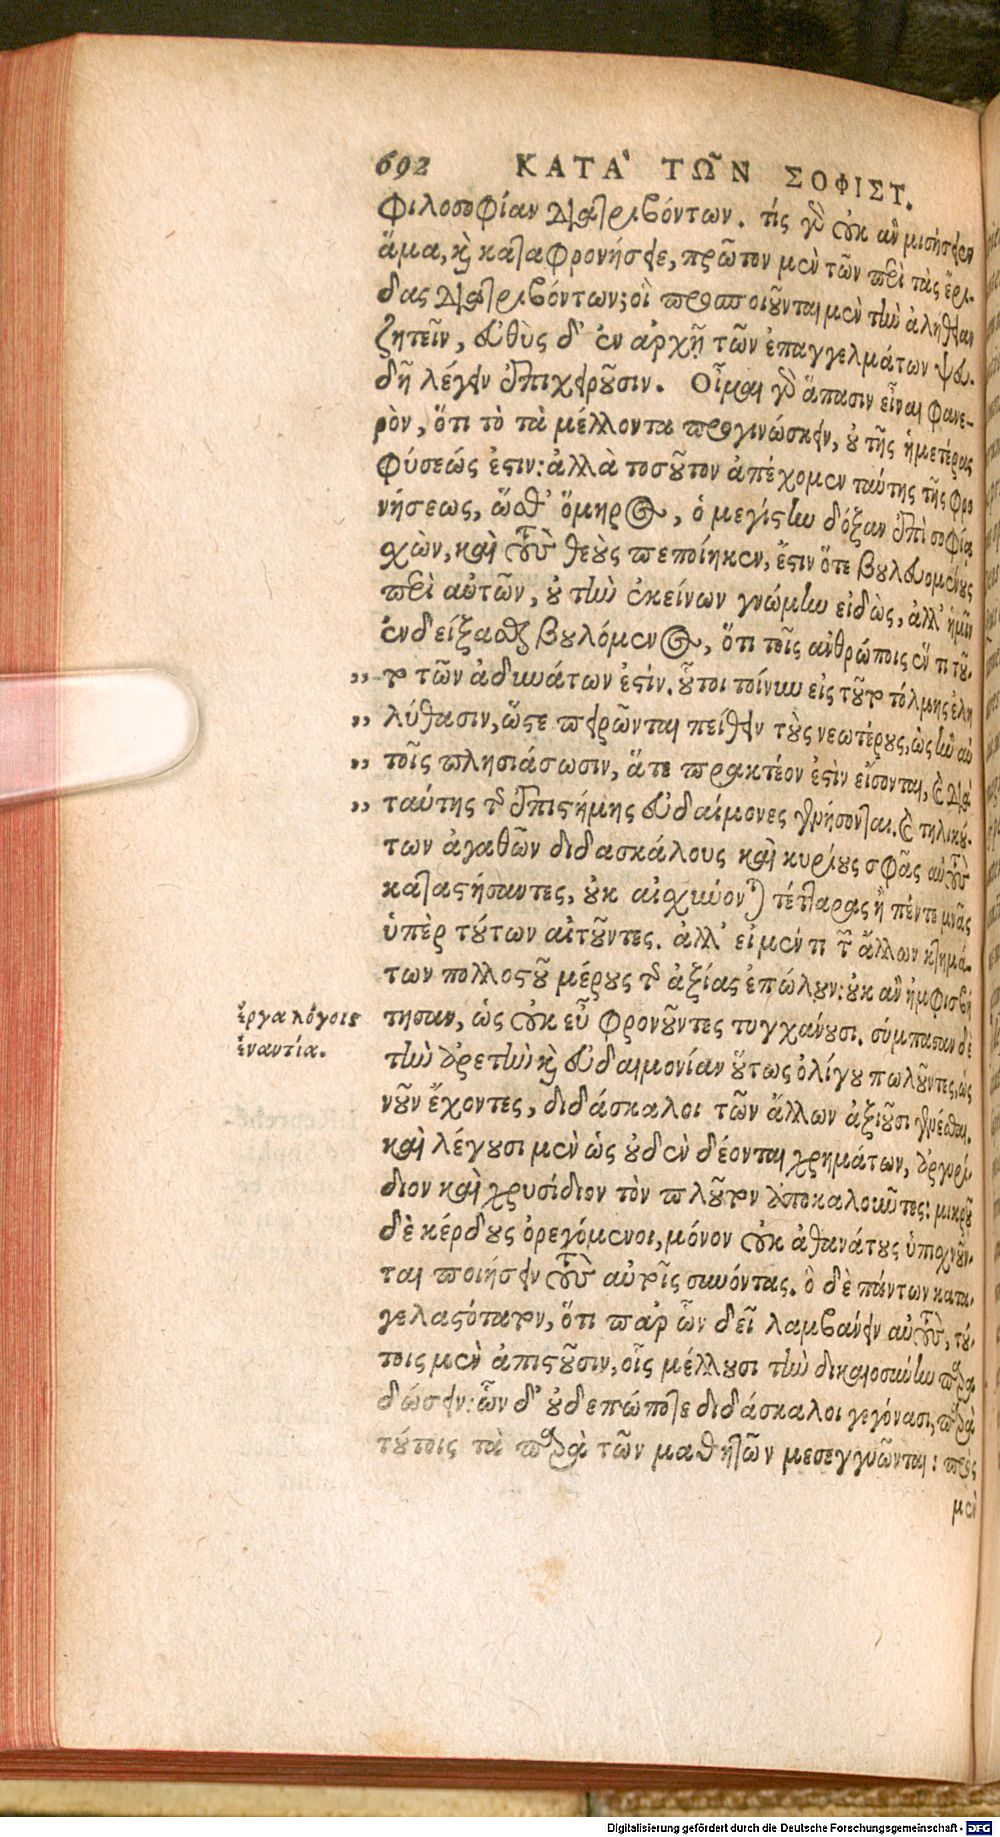 692 ΚΑΤΑ' ΤΩ͂Ν ΣΟΦΙΣΤ.
φιλοσοφίαν διατριβόντων. τίς γὰρ οὐκ ἂν μισήσειεν
ἅμα, καὶ καταφρονήσειε, πρῶτον μὲν τῶν περὶ τὰς ἔρι-
δας διατριβόντων; οἳ προσποιοῦνται μὲν τὴν ἀλήθειαν
ζητεῖν, εὐθὺς δ' ἐν ἀρχῇ τῶν ἐπαγγελμάτων ψευ-
δῆ λέγειν ἐπιχειροῦσιν. Οἶμαι γὰρ ἅπασιν εἶναι φανε-
ρὸν, ὅτι τὸ τὰ μέλλοντα προγινώσκειν, οὐ τῆς ἡμετέρας
φύσεώς ἐστιν: ἀλλὰ τοσοῦτον ἀπέχομεν ταύτης τῆς φρο
νήσεως, ὥσθ' ὅμηρος, ὁ μεγίστην δόξαν ἐπὶ σοφίᾳ
χὼν, καὶ τοὺς θεοὺς πεποίηκεν, ἔστιν ὅτε βουλευομένους
περὶ αὐτῶν, οὐ τὴν ἐκείνων γνώμην εἰδὼς, ἀλλ' ἡμῖν
ἐνδείξασθαι βουλόμενος, ὅτι τοῖς ἀνθρώποις ἓν τι τοῦ-
,, το τῶν ἀδυνάτων ἐστίν. οὗτοι τοίνυν εἰς τοῦτο τόλμης ἐλη
,, λύθασιν, ὥστε πειρῶνται πείθειν τοὺς νεωτέρους, ὡς ἢν αὐ
,, τοῖς πλησιάσωσιν, ἅτε πρακτέον ἐστὶν εἴσονται, καὶ διὰ
,, ταύτης τῆς ἐπιστήμης εὐδαίμονες γενήσονται. καὶ τηλικού-
των ἀγαθῶν διδασκάλους καὶ κυρίους σφᾶς αὐτοὺς
καταστήσαντες, οὐκ αἰσχύνονται τέτταρας ἢ πέντε μνᾶς
ὑπὲρ τούτων αἰτοῦντες. ἀλλ' εἰ μέν τι τῶν ἄλλων κτημά-
των πολλοστοῦ μέρους τῆς ἀξίας ἐπώλουν: οὐκ ἂν ἠμφισβή
τησαν, ὡς οὐκ εὖ φρονοῦντες τυγχάνουσι. σύμπασαν δὲ
τὴν ἀρετὴν καὶ εὐδαιμονίαν οὕτως ὀλίγου πωλοῦντες, ὡς
νοῦν ἔχοντες, διδάσκαλοι τῶν ἄλλων ἀξιοῦσι γενέσθαι.
καὶ λέγουσι μὲν ὡς οὐδὲν δέονται χρημάτων, ἀργυρί-
διον καὶ χρυσίδιον τὸν πλοῦτον ἀποκαλοῦντες: μικροῦ
δὲ κέρδους ὀρεγόμενοι, μόνον οὐκ ἀθανάτους ὑπισχνοῦν-
ται ποιήσειν τοὺς αὐτοῖς συνόντας. ὃ δὲ πάντων κατα-
γελαστότατον, ὅτι παρ ὧν δεῖ λαμβάνειν αὐτοὺς, τού-
τοις μὲν ἀπιστοῦσιν, οἷς μέλλουσι τὴν δικαιοσύνην παρα
δώσειν: ὧν δ' οὐδεπώποτε διδάσκαλοι γεγόνασι, παρὰ
τούτοις τὰ παρὰ τῶν μαθητῶν μεσεγγυῶνται: πρὸς
μὲν
ἔργα λόγοις
ἐναντία.
Digitalisierung gefördert durch die Deutsche Forschungsgemeinschaft - DFG